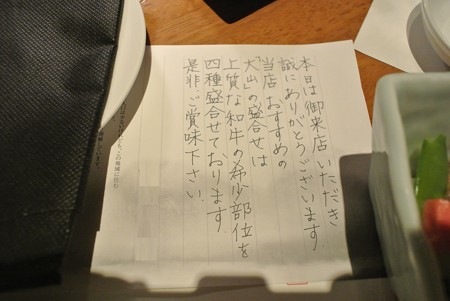 本日は御来店いただき
誠にありがとうございます
当店おすすめの
「大山」の盛合せは
上質な和牛の希少部位を
四種盛合せております
是非、ご賞味下さい。